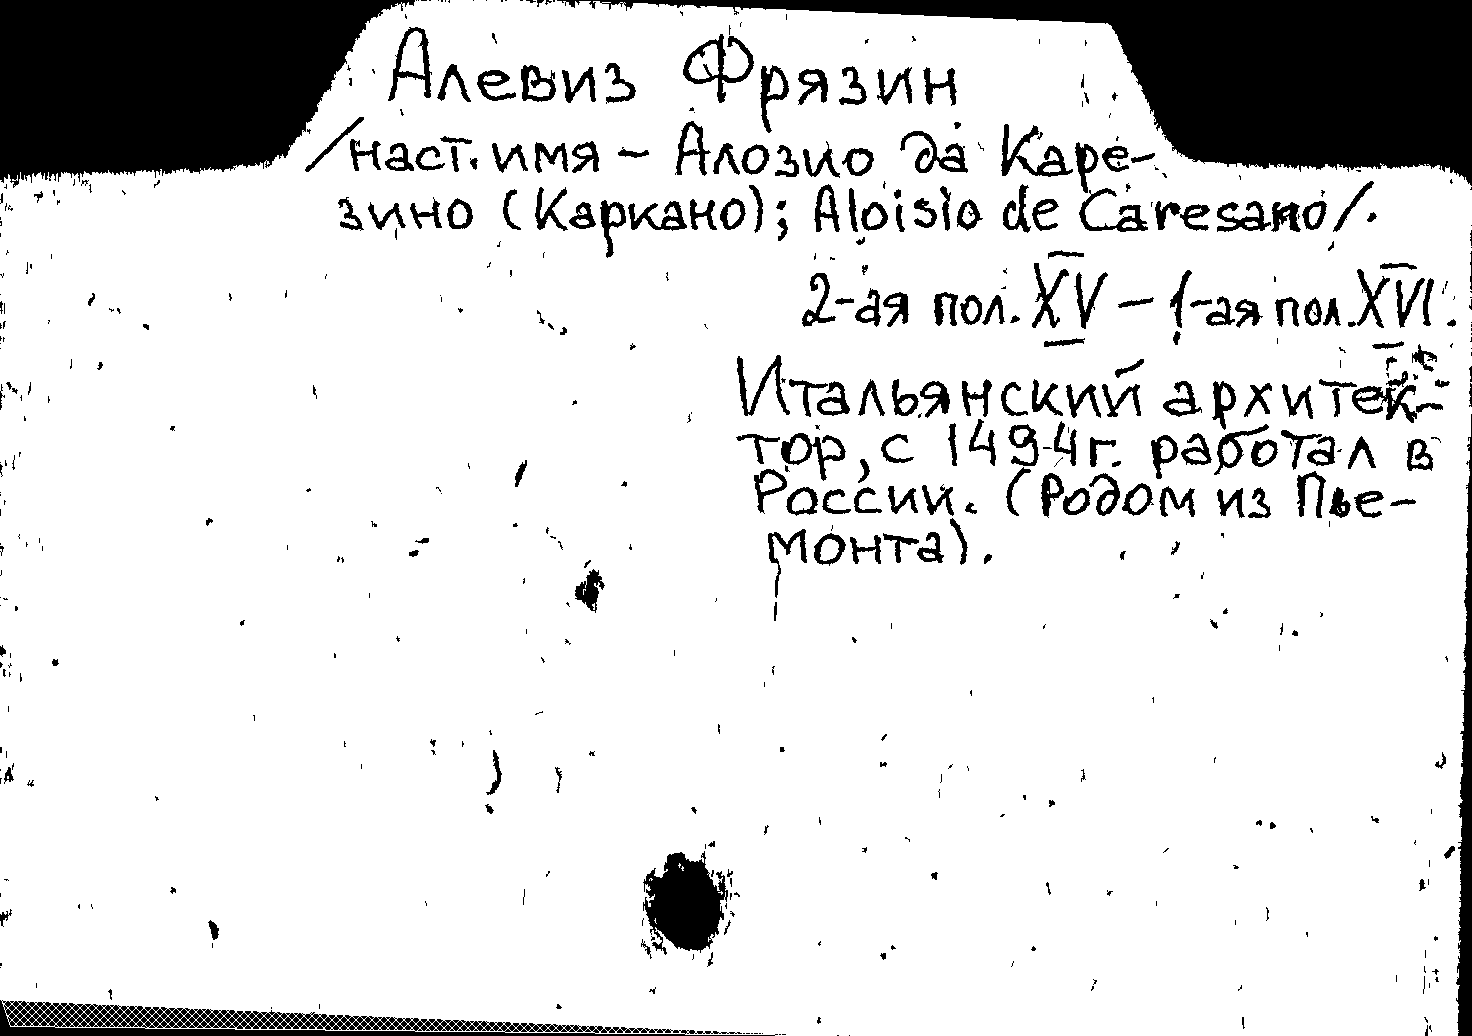 Алевиз Фрязин
/наст. имя – Алозио да Каре-
зино (Каркано); Aloisio de Caresano/.
2-ая пол. XV – 1-ая пол. XVI.
Итальянский архитек-
тор, с 1494г. работал в
России. (Родом из Пье-
монта).